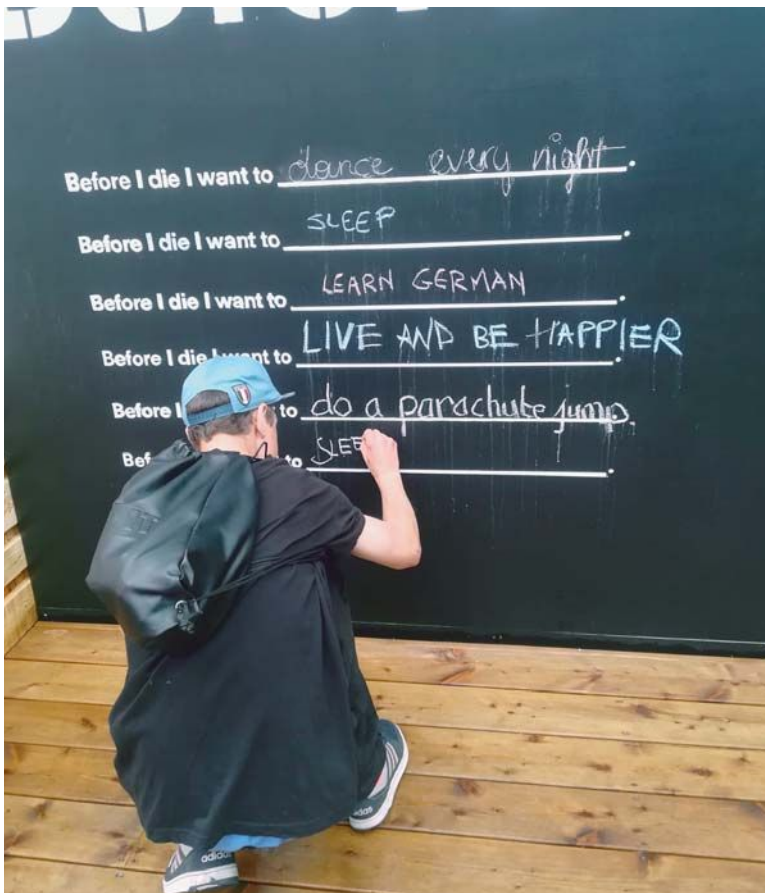 Before I die I want to dance every night.
Before I die I want to SLEEP.
Before I die I want to LEARN GERMAN.
Before I die I want to LIVE AND BE HAPPIER.
Before I to do a parachute jump.
to SLEE.
adidas